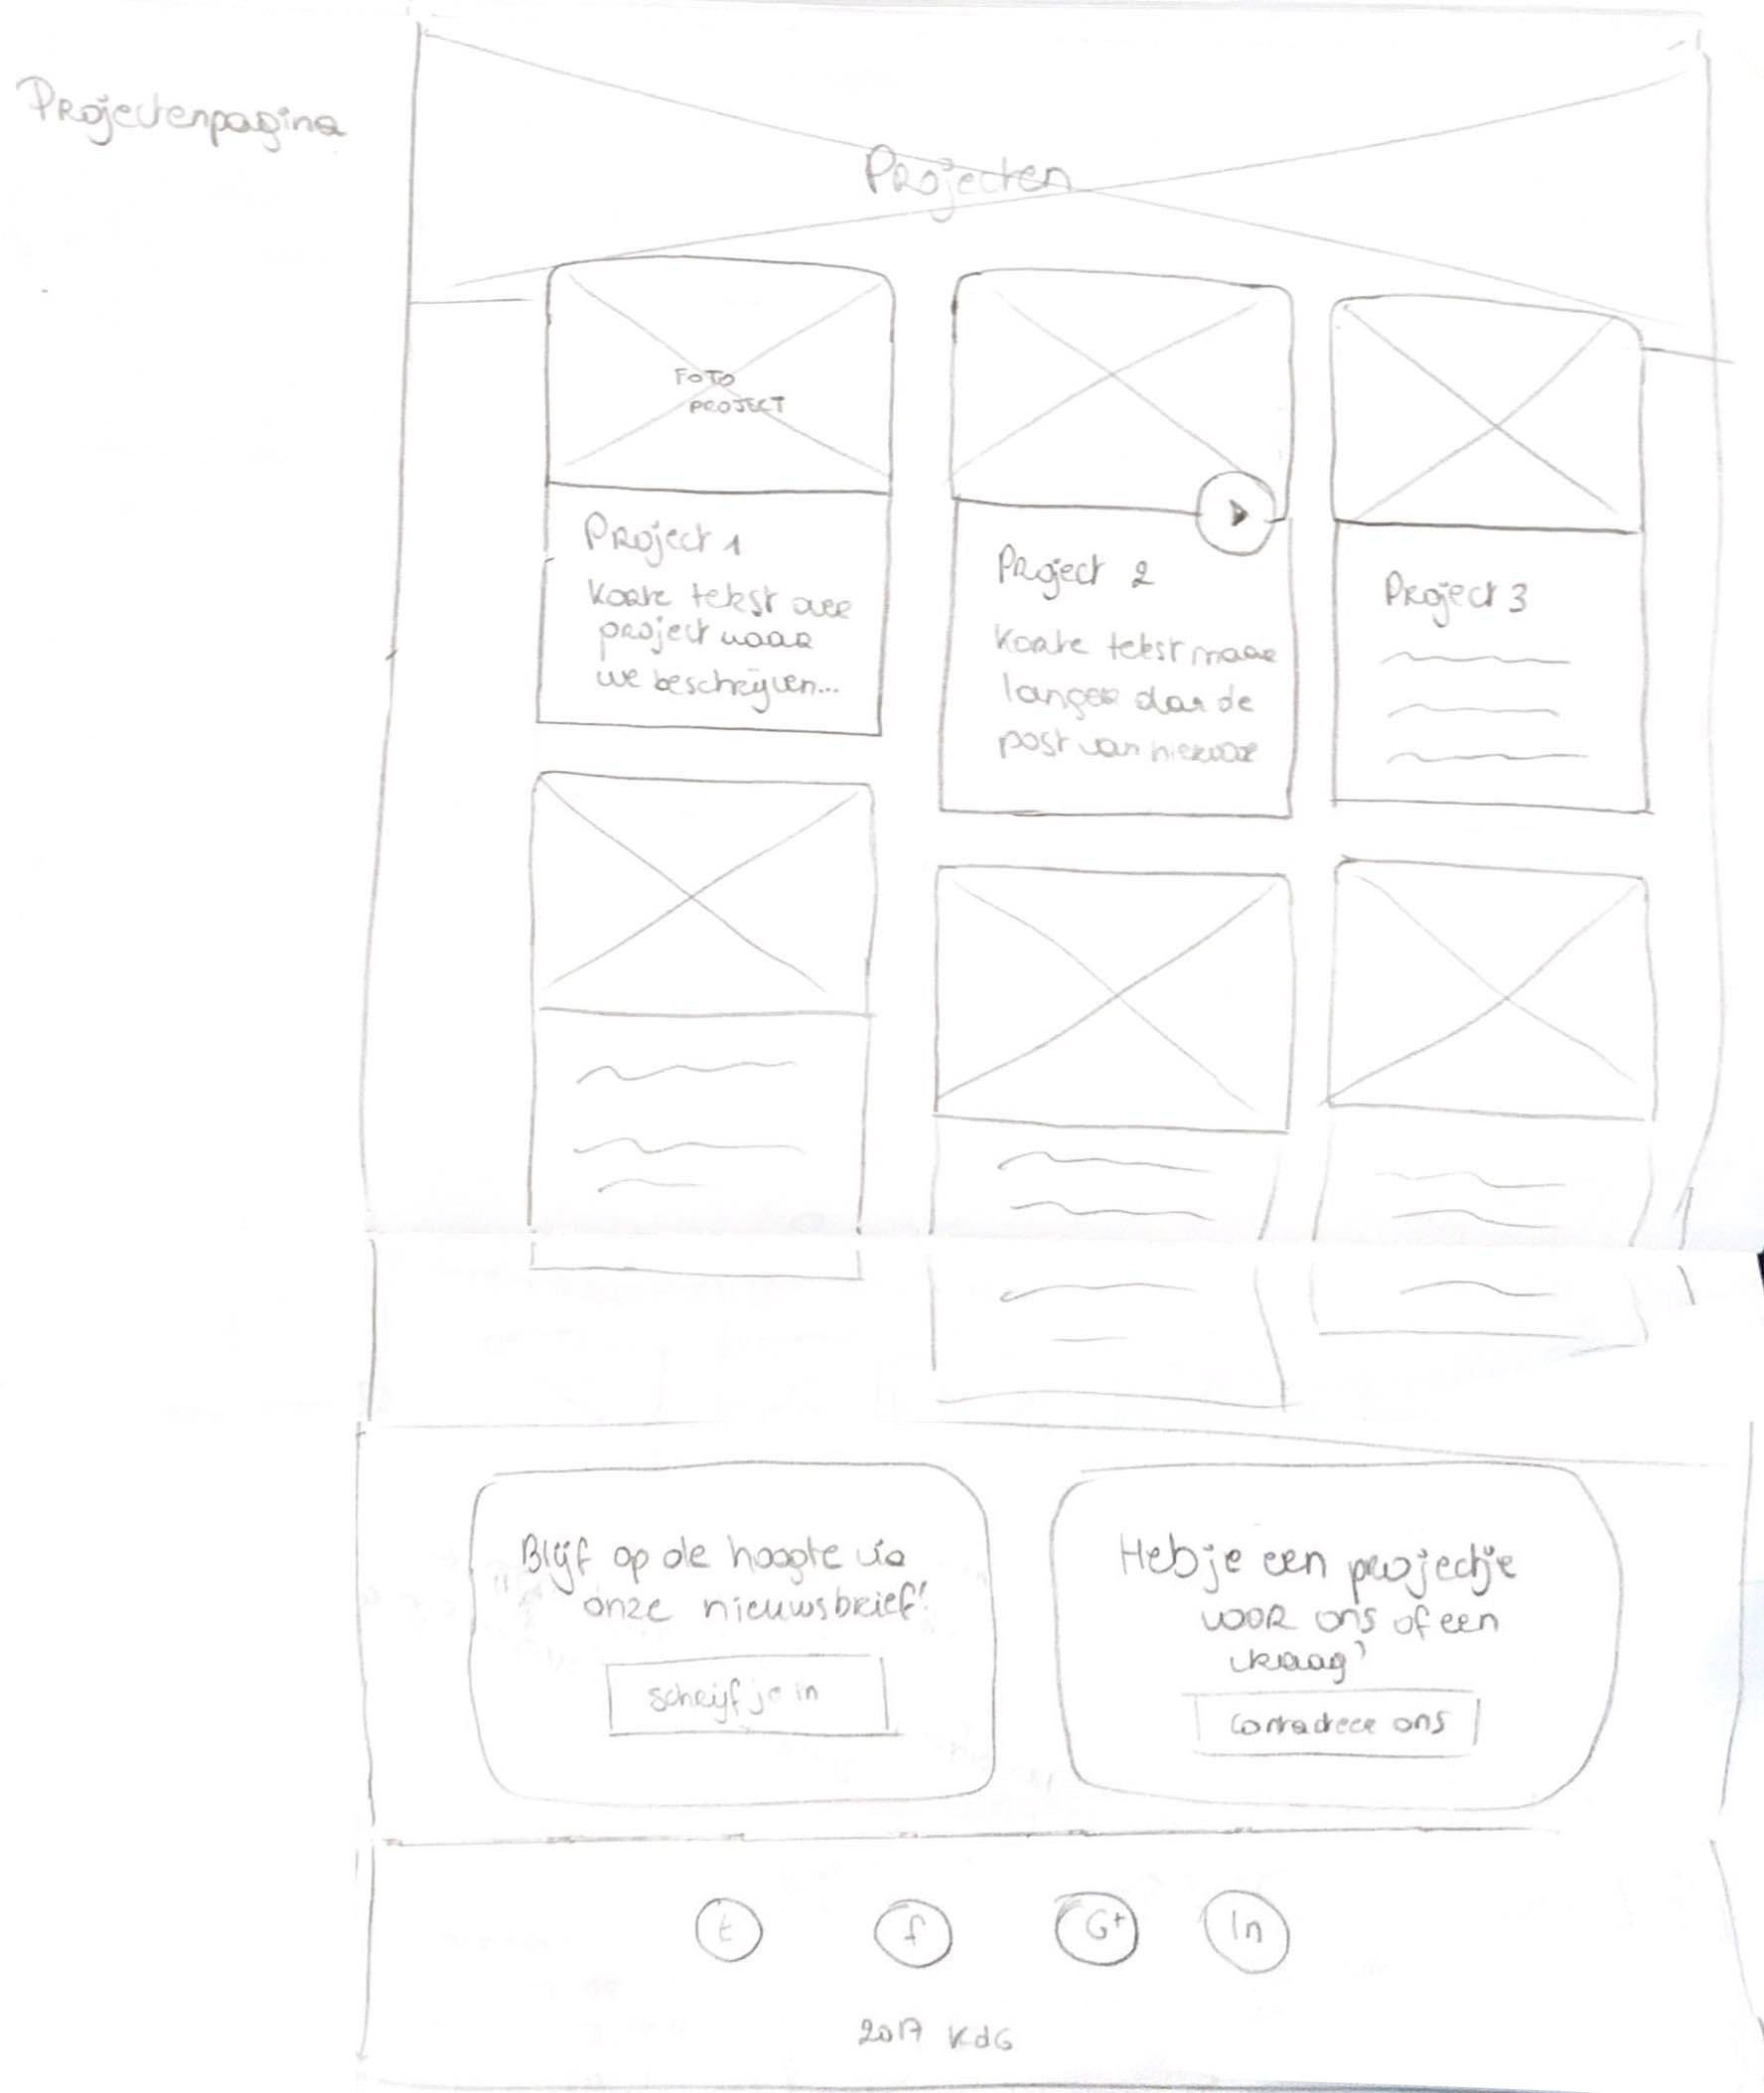 Projectenpagina
Projecten
FOTO
PROJECT
Project 1
Korte tekst over
project waar
we beschrijven...
Project 2
Korte tekst maar
langer dan de
post van hiervoor
Project 3
Blijf op de hoogte via
onze nieuwsbrief!
Schrijf je in
Heb je een projectje
voor ons of een
vraag?
Contacteer ons
t
f
G+
In
2017 KdG